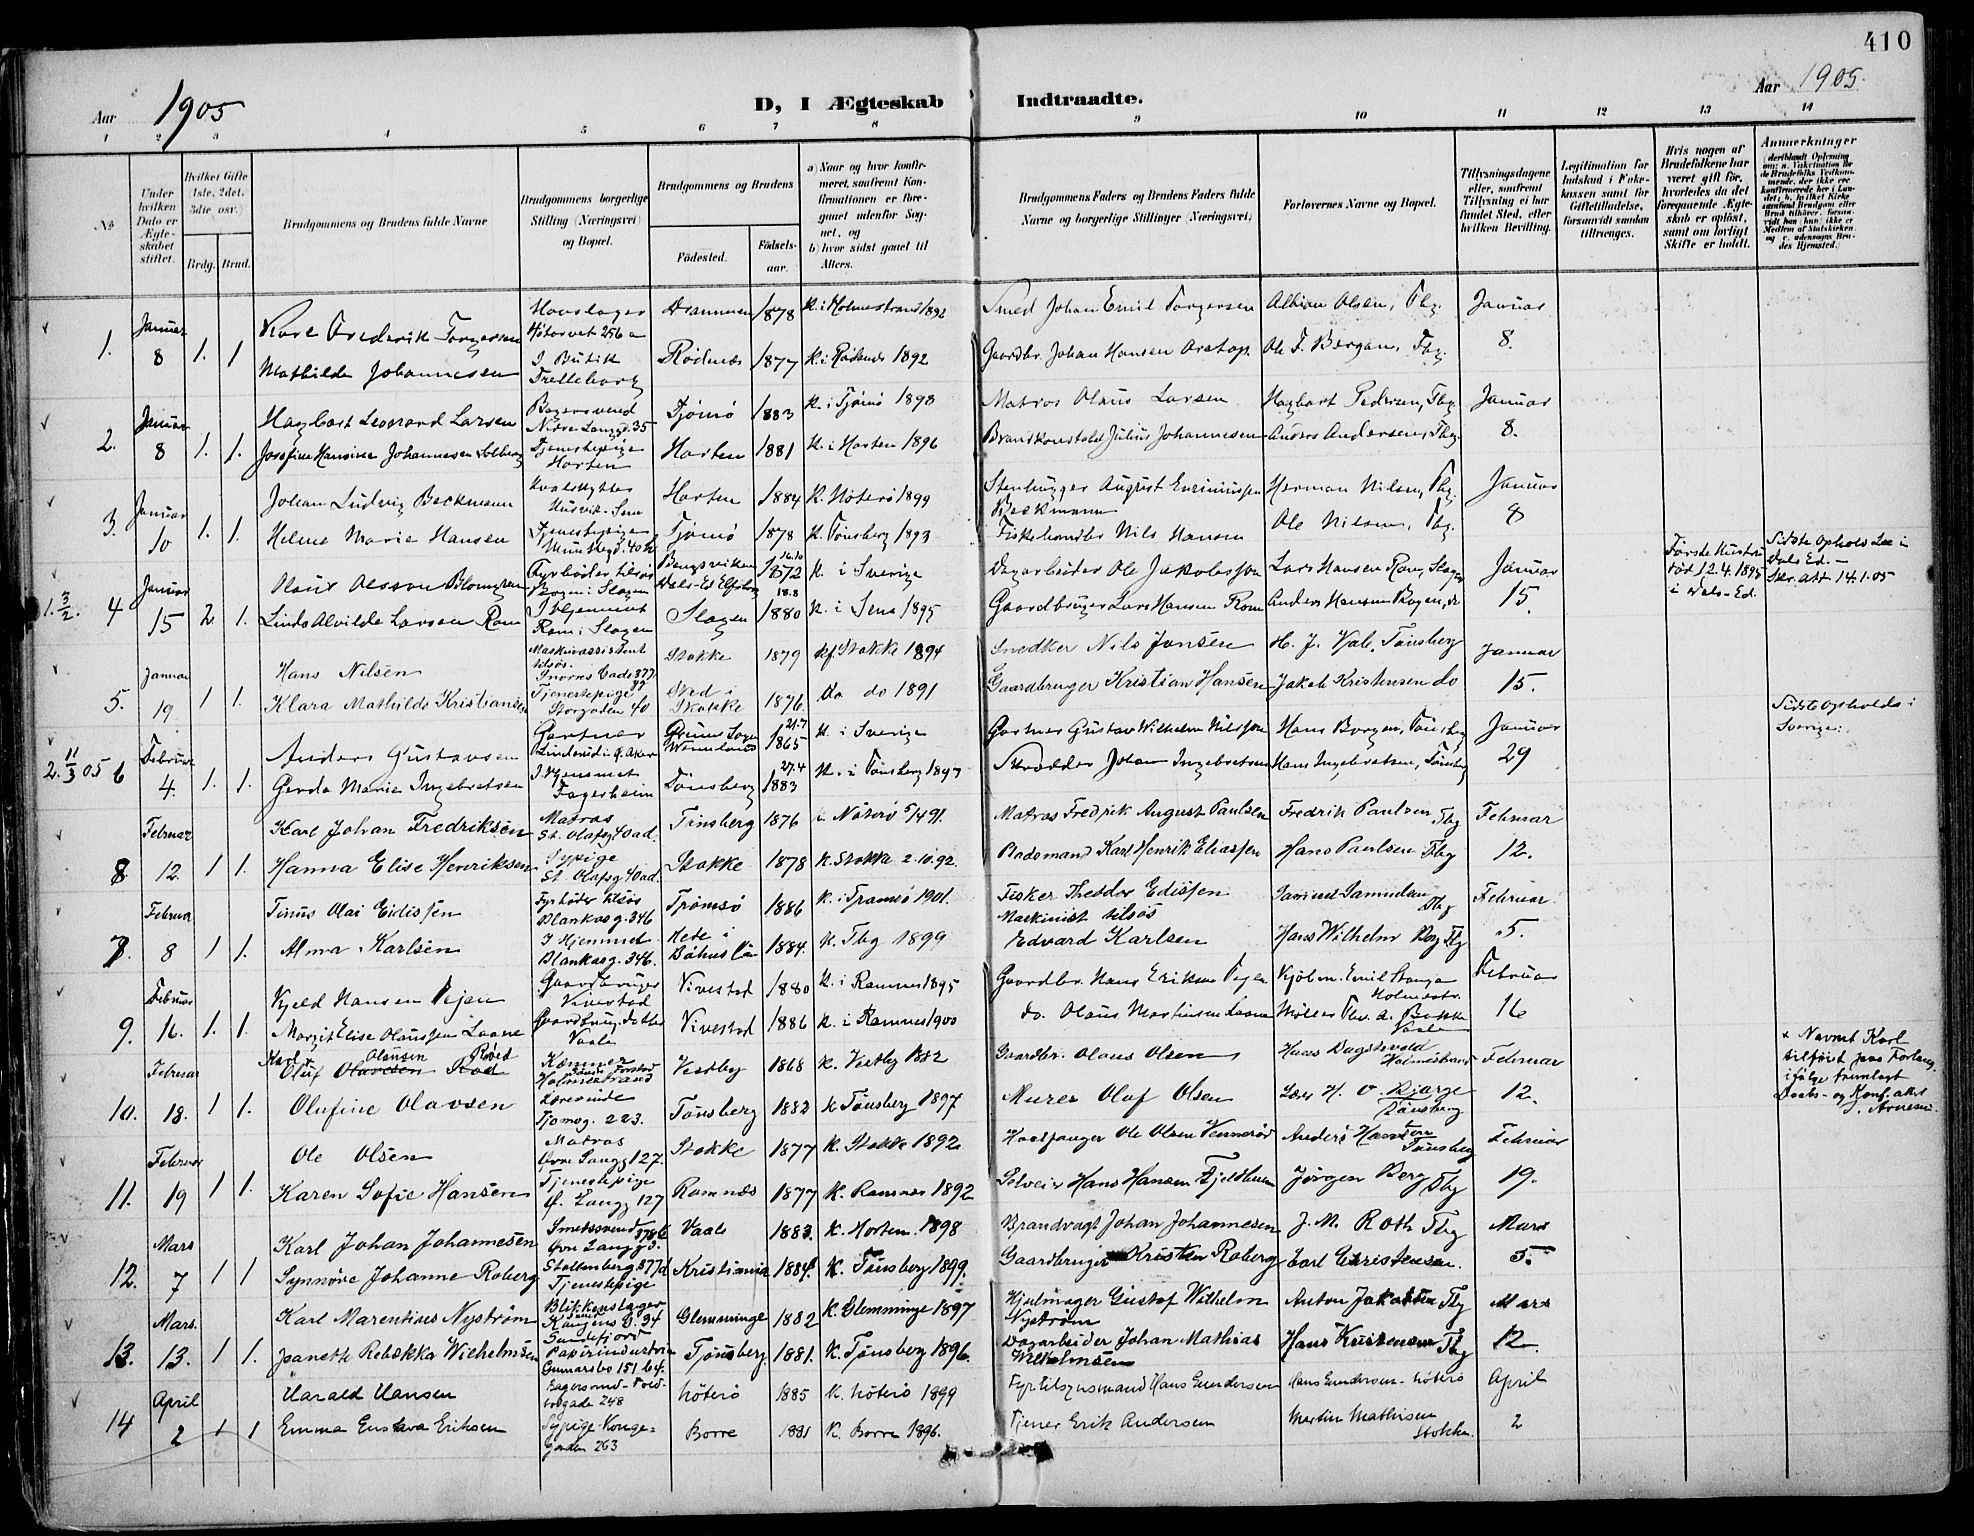 410
Aar 1905
D, I Ægteskab Indtraadte.
Aar 1905.
1 2 3 4 5 6 7 8 9 10 11 12 13 14
No
Under hvilken Dato er Ægteskabet stiftet.
Hvilket Gifte (1ste, 2det, 3die osv.)
Brdg. Brud.
Brudgommens og Brudens fulde Navne
Brudgommens borgerlige Stilling (Næringsvei) og Bopæl.
Brudgommens og Brudens
Fødested. Fødselsaar.
a) Naar og hvor konfirmeret, saafremt Konfirmationen er foregaaet udenfor Sognet, og
b) hvor sidst gaaet til Alters.
Brudgommens Faders og Brudens Faders fulde Navne og borgerlige Stillinger (Næringsvei)
Forlovernes Navne og Bopæl.
Tillysningsdagene eller, saafremt Tillysning ei har fundet Sted, efter hvilken Bevilling.
Legitimation for Indskud i Enkekassen samt for Giftetilladelse, forsaavidt saadan tiltrænges.
Hvis nogen af Brudefolkene har været gift før, hvorledes da det foregaaende Ægteskab er opløst, samt om lovligt Skifte er holdt.
Anmerkninger
1. Januar 8 1. 1
Kare Frederik Torgersen Hovslager Høtorvet 256a Drammen 1878 K. i Holmestrand 1892 Smed Johan Emil Torgersen Albion Olsen, Tbg. Januar 8.
Mathilde Johannesen I Butik Trelleborg Rødnæs 1877 K. i Rødnæs 1892 Gaardbr. Johan Hansen Ole F. Bergan, Tbg.
2. Januar 8 1. 1.
Hagbart Leonard Larsen Bagersvend Nedre Langg. 35 Tjømø 1883 K. i Tjømø 1898 Matros Olaus Larsen Hagbart Pedersen, Tbg. Januar 8.
Josefine Hansine Johannesen Solberg Tjenestepige Horten Horten 1881 K. i Horten 1896 Brandkonstabel Julius Johannesen Anders Andersen, Tbg.
3. Januar 10 1. 1.
Johan Ludvig Beckmann Hvalskytter Husvik Sem Horten 1884 K. Nøterø 1899 Stenhugger August Beckmann Herman Nilsen, Tbg. Januar 8
Helene Marie Hansen Tjenestepige Munkegd. 40 Tjømø 1878 K. Tønsberg 1893 Fiskehandler Nils Hansen Ole Nilsen, Tbg.
1. 3/2. 4 Januar 15 2 1.
Olaus Olsson Blomgren Fyrbøder tilsøs Bogen i Slagen Bengsviken Dals-Ed Elfsborg 16.10 1872 K. i Sverige Dagarbeider Ole Jakobsson Lars Hansen Rom, Slagen Januar 15. Første Hustru død 12.4.1895 i Dals-Ed. Sidste Ophold i Dals Ed. – Skr. att 14.1.05
Linda Alvilde Larsen Rom I Hjemmet Rom i Slagen Slagen 18.8 1880 K. i Sem 1895 Gaardbruger Lars Hansen Rom Anders Hansen Bogen, do
5. Januar 19 1 1.
Hans Nilsen Maskinassistent tilsøs. Stokke 1879 kf. Stokke 1894 Snedker Nils Jansen H. J. Hval, Tønsberg Januar 15.
Klara Mathilde Kristiansen Tjenestepige Storgaden 40 Sted i Stokke 1876 do do 1891 Gaardbruger Kristian Hansen Jakob Kristensen do
2. 11/3 05 6 Februar 4. 1. 1.
Anders Gustavsen Gartner Linderud i Ø. Aker Grums Sogn Wermland 21.7 1865 K. i Sverige Gartner Gustav Wilhelm Nilsson Hans Borgen, Tønsberg Januar 29 Sidste Ophold i Sverige.
Gerda Marie Ingebretsen I Hjemmet Fagerheim Tønsberg 27.4 1883 K. i Tønsberg 1897 Skrædder Johan Ingebretsen Hans Ingebretsen, Tønsberg
8 Februar 12. 1 1.
Karl Johan Fredriksen Matros St. Olafsg 40 ad. Tønsberg 1876 i Nøterø 5/4 91. Matros Fredrik August Paulsen Fredrik Paulsen, Tbg Februar 12.
Hanna Elise Henriksen Sypige St. Olafsg 40 ad. Stokke 1878 K. Stokke 2.10.92. Baadsmand Karl Henrik Eliassen Hans Paulsen Tbg
7. Februar 8 1 1.
Tinus Olai Eidissen Fyrbøder tilsøs Blankasg. 346 Tromsø 1886 K. i Tromsø 1901. Fisker Theodor Edissen Samuel Samuelsen Tbg Februar 5.
Alma Karlsen I Hjemmet Blankasg. 346. Hede i Båhus Län 1884. K. Tbg 1899 Maskinist tilsøs Edvard Karlsen Hans Wilhelm Berg Tbg
9. Februar 16. 1. 1.
Kjeld Hansen Vejen Gaardbruger Vivestad Vivestad 1880 K. i Ramnes 1895 Gaardbr. Hans Eriksen Vejen Kjøbm. Emil Stange Holmestr. Februar 16
Margit Elise Olaussen Laane Gaardbrug. datter Vaale Vivestad 1886 K. i Ramnes 1900 do. Olaus Martinsen Laane Møller Thv. A. Bakke Vaale
10. Februar 18. 1 1.
Karl x Oluf Olausen Røed Kæmner Holmestrand Vestby 1868 K. Vestby 1882 Gaardbr. Olaus Olsen Hans Dagstveld Holmestrand Februar 12. x Navnet Karl tilføiet paa Forlang. ifølge fremlagt Daabs- og Konf. attest
Olufine Olavsen Lærerinde Tjømeg. 223. Tønsberg 1882 K Tønsberg 1897 Murer Oluf Olsen Lær H. O. Bjørge Tønsberg
11. Februar 19 1 1.
Ole Olsen Matros Øvre Langg 127. Stokke 1877 K. Stokke 1892 Hvalfanger Ole Olsen Vennerød Anders Hansen Tønsberg Februar 19.
Karen Sofie Hansen Tjenestepige Ø. Langg 127 Ramnæs 1877 K. Ramnæs 1892 Hans Hansen Fjeldheim Jørgen Berg Tbg
12. Mars 7 1 1
Karl Johan Johannesen Smedsvend Øvre Langg 378b Vaale 1883. K. Horten 1898 Brandvagt Johan Johannesen J. M. Roth Tbg Mars 5.
Synnøve Johanne Roberg Stoltenberg 377d Tjenestepige Kristiania 1884. K. Tønsberg 1899. Gaardbruger Kristen Roberg Carl Christensen.
13. Mars. 13. 1 1.
Karl Marentius Nystrøm Blikkenslager Kongens G. 34 Sandefjord Glemminge 1882 K. Glemminge 1897 Hjulmager Gustaf Wilhelm Nystrøm Anton Jakobsen Tbg Mars 12.
Jeaneth Rebekka Wilhelmsen Papirindustri Gunnarsbo 151 b4. Tønsberg. 1881. K. Tønsberg 1896. Dagarbeider Johan Mathias Wilhelmsen Hans Kristensen Tbg
14 April 2 1 1
Harald Hansen Bagersvend – Foldbrogade 248 Nøterø 1885 K. Nøterø 1899 Fyrtilsynsmand Hans Gundersen Hans Gundersen – Nøterø April 2
Emma Gustava Eriksen Sypige Kongegaden 263 Borre 1881 K. Borre 1896. Tjener Erik Andersen Martin Mathisen Stokke.